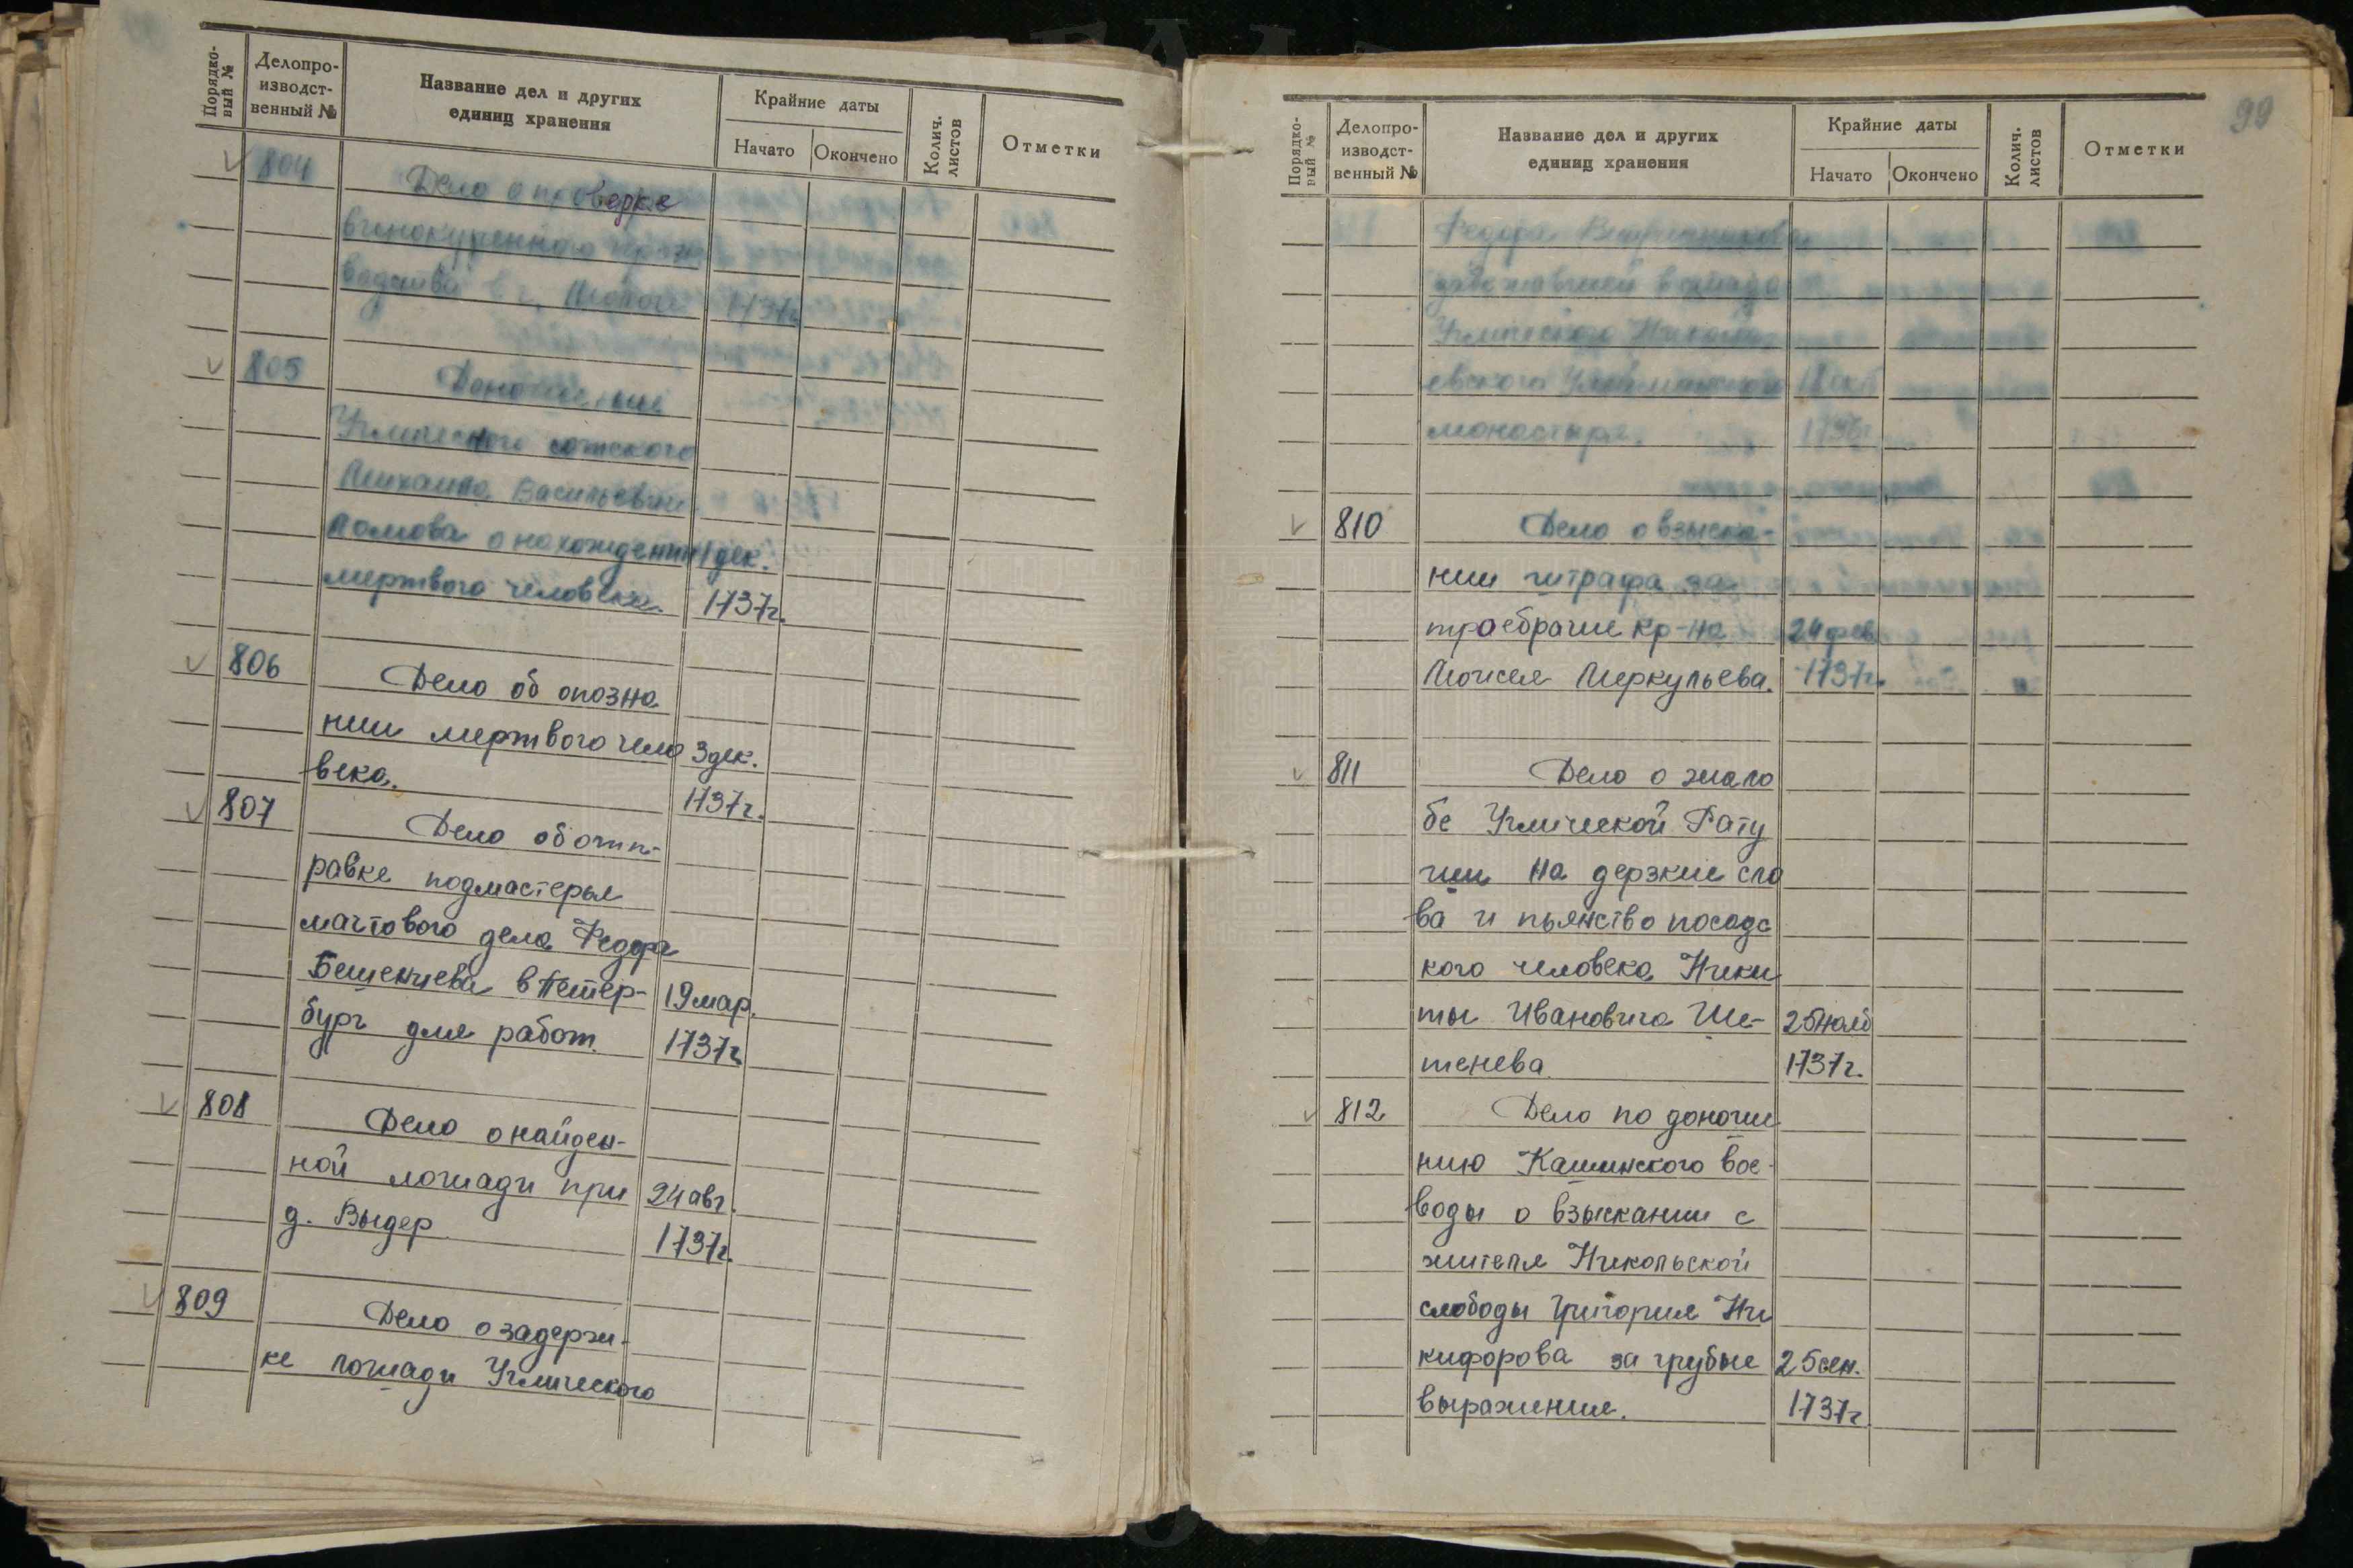 Порядко-
вый №
Делопро-
изводст-
венный №
Название дел и других
единиц хранения
Крайние даты
Начато
Окончено
Колич.
листов
Отметки
804
Дело о проверке
винокуренного произ
водства в г. Мологе 1737г.
805
Доношение
Угличского сотского
Михаила Васильевича
о нахождении 1 дек.
мертвого человека. 1737г.
806
Дело об опозна
нии мертвого чело 3 дек.
века. 1737г.
807
Дело об отп-
равке подмастерья
мачтового дела Федора
Бешенцева в Петер- 19 мар.
бург для работ. 1737г.
808
Дело о найден-
ной лошади при 24 авг.
д. Выдер 1737г.
809
Дело о задерж-
ке лошади Угличского
99
Порядко-
вый №
Делопро-
изводст-
венный №
Название дел и других
единиц хранения
Крайние даты
Начато
Окончено
Колич.
листов
Отметки
Федора
Угличского Никола
евского
монастыря. 1736г.
810
Дело о взыска-
нии штрафа за
троебрачие кр-на 24 фев
Моисея Меркульева. 1737г.
811
Дело о жало
бе Угличской Рату
ши на дерзкие сло
ва и пьянство посадс
кого человека Ники
ты Ивановича Ше- 25 нояб
тенева 1737г.
812
Дело по доноше
нию Кашинского вое-
воды о взыскании с
жителя Никольской
слободы Григория Ни
кифорова за грубые 25 сен.
выражения. 1737г.